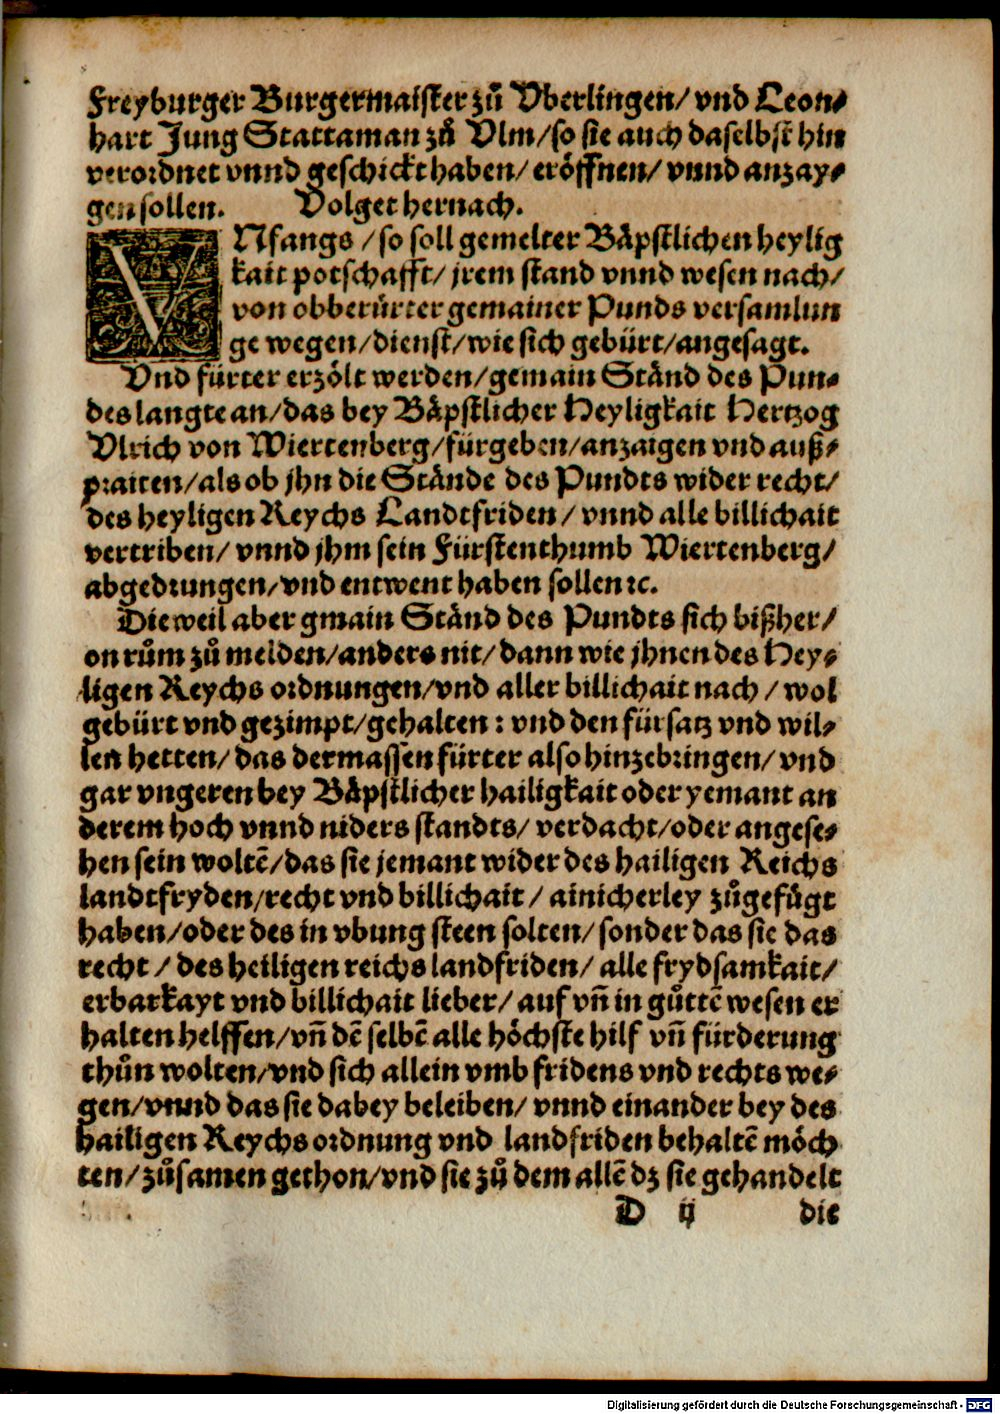 Freyburger Burgermaister zů Vberlingen/ vnd Leon⸗
hart Jung Stattaman zů Vlm/ so sie auch daselbst hin
verordnet vnnd geschickt haben/ eröffnen/ vnnd anzay⸗
gen sollen. Volget hernach.
VNfangs / so soll gemelter Bäpstlichen heylig
kait potschafft/ jrem stand vnnd wesen nach/
von obberürter gemainer Punds versamlun
ge wegen/ dienst/ wie sich gebürt/ angesagt.
Vnd fürter erzölt werden/ gemain Ständ des Pun⸗
des langte an/ das bey Bäpstlicher Heyligkait Hertzog
Vlrich von Wiertenberg/ fürgeben/ anzaigen vnd auß⸗
praiten/ als ob jhn die Stände des Pundts wider recht/
des heyligen Reychs Landtfriden/ vnnd alle billichait
vertriben/ vnnd jhm sein Fürstenthumb Wiertenberg/
abgedrungen/ vnd entwent haben sollen ꝛc.
Die weil aber gmain Ständ des Pundts sich bißher/
on rům zů melden/ anders nit/ dann wie jhnen des Hey⸗
ligen Reychs ordnungen/ vnd aller billichait nach / wol
gebürt vnd gezimpt/ gehalten : vnd den fürsatz vnd wil⸗
len hetten/ das dermassen fürter also hinzebringen/ vnd
gar vngeren bey Bäpstlicher hailigkait oder yemant an
derem hoch vnnd niders standts/ verdacht/ oder angese⸗
hen sein woltē/ das sie jemant wider des hailigen Reichs
landtfryden/ recht vnd billichait/ ainicherley zůgefůgt
haben/ oder des in vbung steen solten/ sonder das sie das
recht / des heiligen reichs landfriden/ alle frydsamkait/
erbarkayt vnd billichait lieber/ auf vn̄ in gůttē wesen er
halten helffen/ vn̄ dē selbē alle höchste hilf vn̄ fürderung
thůn wolten/ vnd sich allein vmb fridens vnd rechts we⸗
gen/ vnnd das sie dabey beleiben/ vnnd einander bey des
hailigen Reychs ordnung vnd landfriden behaltē möch
ten/ zůsamen gethon/ vnd sie zů dem allē dz sie gehandelt
D ij die
Digitalisierung gefördert durch die Deutsche Forschungsgemeinschaft - DFG